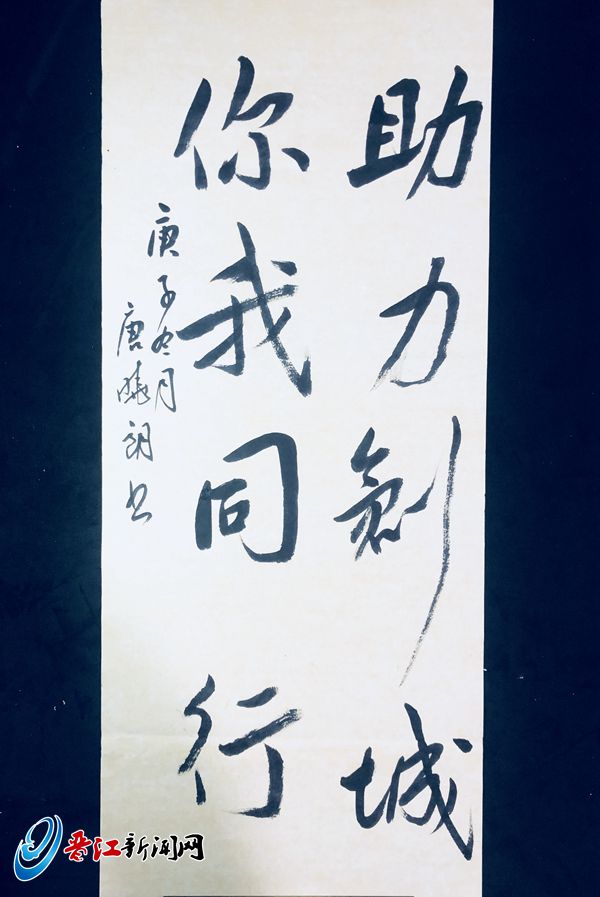 助力創城
你我同行
庚子冬月
唐曉朗书
晋江新闻网